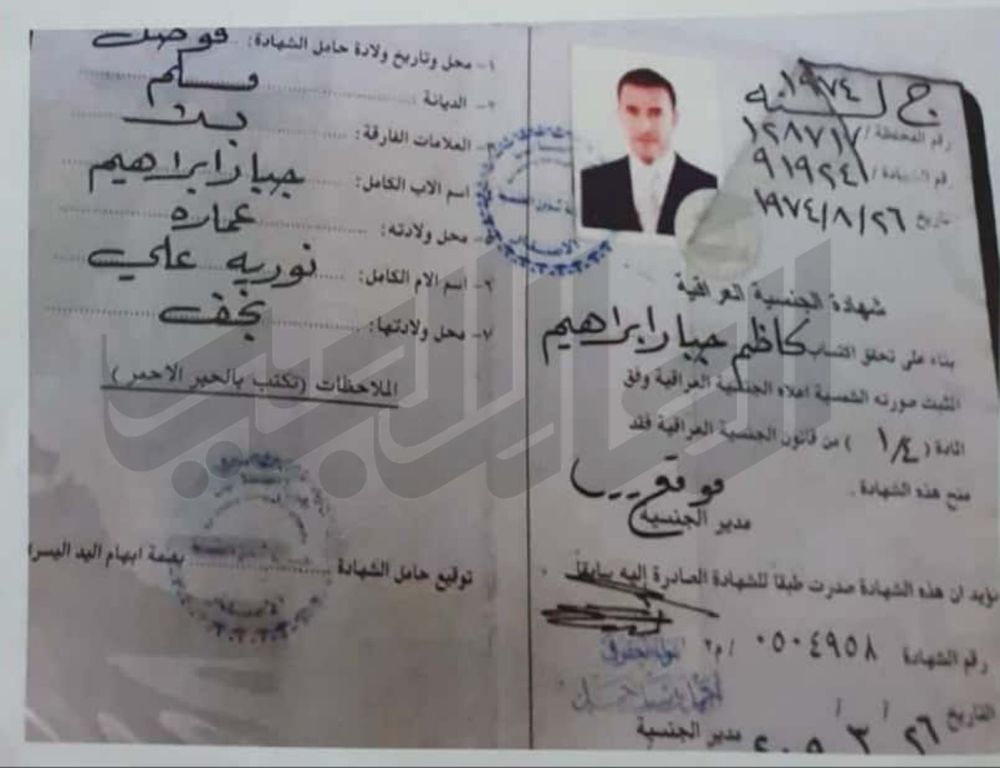 ج لسنه ١٩٧٤
رقم المحفظة / ١٢٨٧١٧
رقم الشهادة / ٩١٩٢٤١
تاريخ ١٩٧٤/٨/٢٦
شهادة الجنسية العراقية
بناء على تحقق اكتساب كاظم جبار ابراهيم
المثبت صورته الشمسية اعلاه الجنسية العراقية وفق
المادة ( ١/٤ ) من قانون الجنسية العراقية فقد
منح هذه الشهادة .
موقع
مدير الجنسية
نؤيد ان هذه الشهادة صدرت طبقاً للشهادة الصادرة إليه سابقاً .
رقم الشهادة ٠٥٠٤٩٥٨ / م٢
التاريخ ٢٦ / ٣ /
مدير الجنسية
١- محل وتاريخ ولادة حامل الشهادة:
٢- الديانة : مسلم
٣- العلامات الفارقة:
٤- اسم الاب الكامل: جبار ابراهيم
٥- محل ولادته: عماره
٦- اسم الام الكامل: نوريه علي
٧- محل ولادتها: نجف
الملاحظات (تكتب بالحبر الاحمر)
توقيع حامل الشهادة
بصمة ابهام اليد اليسر
الاصدار